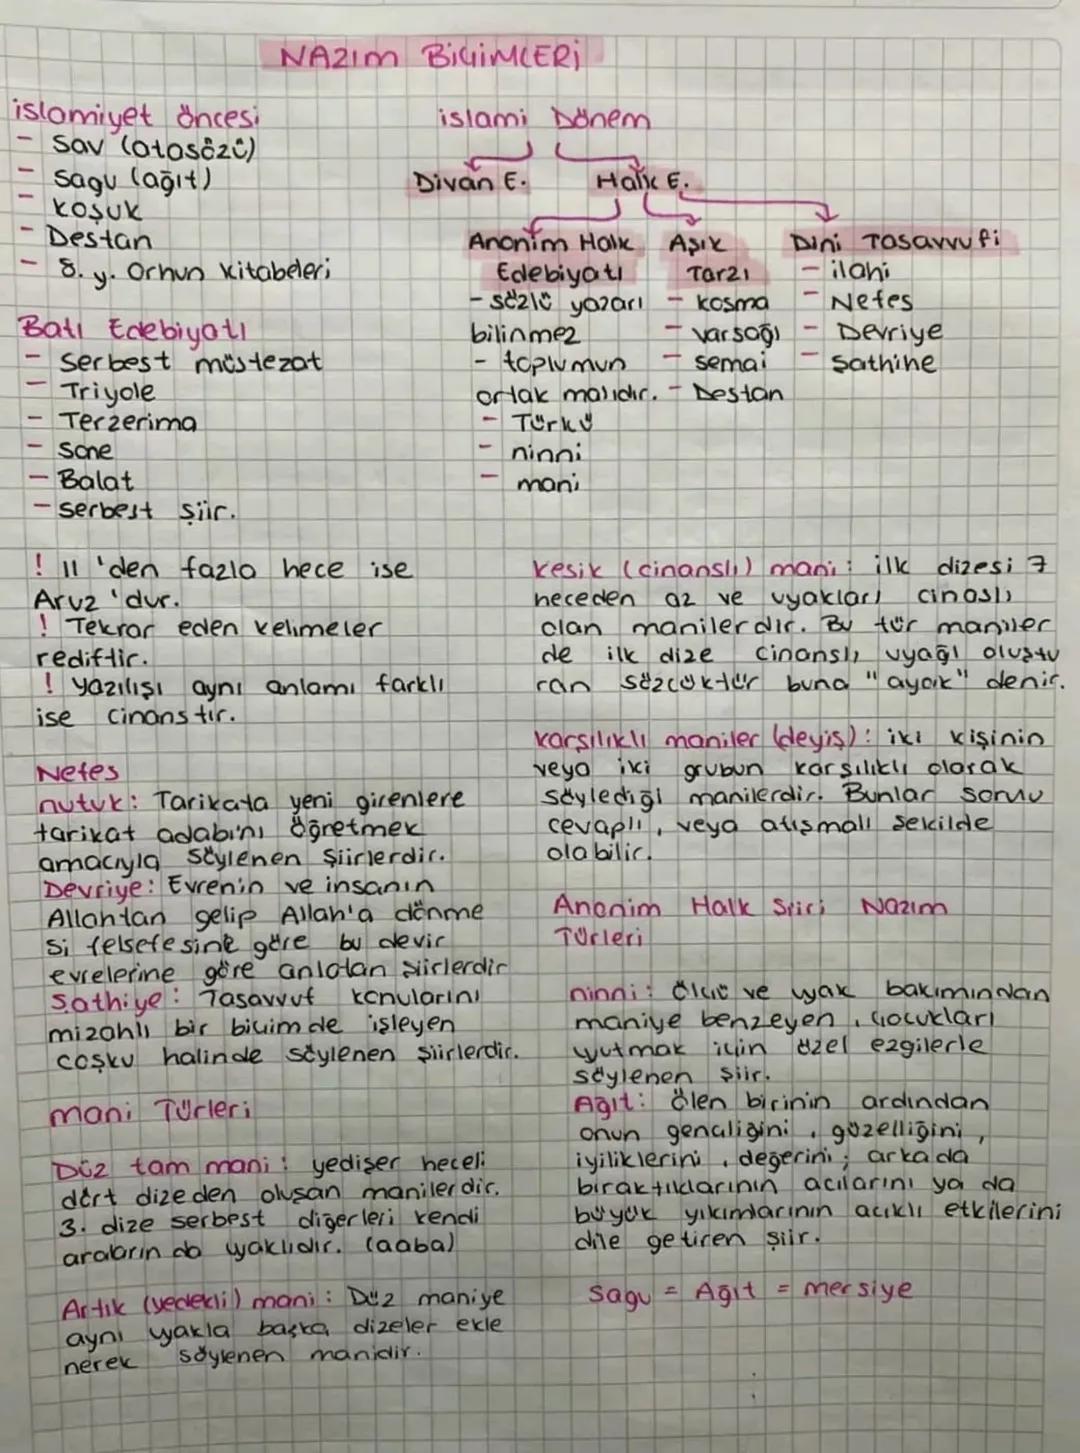 NAZIM BİÇİMLERİ
islamiyet öncesi
- Sav (atasözü)
- Sagu (ağıt)
- Koşuk
- Destan
- 8. y. Orhun kitabeleri
Batı Edebiyatı
- Serbest müstezat
- Triyole
- Terzerima
- Sone
- Balat
- Serbest şiir.
islami Dönem
Divan E. Halk E.
Anonim Halk Edebiyatı
- sözlü yazarı
bilinmez
- toplumun
ortak malıdır.
- Türkü
- ninni
- mani
Aşık
Tarzı
- kosma
- varsağı
- semai
- Destan
Dini Tasavvufi
- ilahi
- Nefes
- Devriye
- Sathine
! 11 'den fazla hece ise
Aruz 'dur.
! Tekrar eden kelimeler
rediftir.
! yazılışı aynı anlamı farklı
ise cinanstır.
Nefes
nutuk: Tarikata yeni girenlere
tarikat adabını öğretmek
amacıyla söylenen şiirlerdir.
Devriye: Evrenin ve insanın
Allahtan gelip Allah'a dönme
si felsefesine göre bu devir
evrelerine göre anlatan şiirlerdir
Sathiye: Tasavvuf konularını
mizahlı bir biçimde işleyen
coşku halinde söylenen şiirlerdir.
mani Türleri
Düz tam mani: yedişer heceli
dört dizeden oluşan manilerdir.
3. dize serbest diğerleri kendi
aralarında uyaklıdır. (aaba)
Artık (yedekli) mani: Düz maniye
aynı uyakla başka dizeler ekle
nerek söylenen manidir.
kesik (cinanslı) mani: ilk dizesi 7
heceden az ve uyakları cinaslı
olan manilerdir. Bu tür maniler
de ilk dize cinanslı, uyağı oluştu
ran sözcüktür buna "ayak" denir.
karşılıklı maniler (deyiş): iki kişinin
veya iki grubun karşılıklı olarak
söylediği manilerdir. Bunlar sorulu
cevaplı, veya atışmalı şekilde
olabilir.
Anonim Halk Şiiri Nazım
Türleri
ninni: Ölçü ve uyak bakımından
maniye benzeyen, çocukları
uyutmak için özel ezgilerle
söylenen şiir.
Ağıt: Ölen birinin ardından
onun gençliğini, güzelliğini,
iyiliklerini, değerini; arkada
bıraktıklarının acılarını ya da
büyük yıkımlarının acıklı etkilerini
dile getiren şiir.
Sagu = Ağıt = mersiye